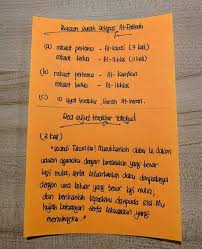 Bacaan surah selepas Al-Fatihah
(a) rakaat pertama - Al-Kafirun (7 kali)
rakaat kedua - Al-Ikhlas (11 kali)
(b) rakaat pertama - Al-Kafirun
rakaat kedua - Al-Ikhlas
(c) 10 ayat terakhir surah Al-Imran.
Doa sujud terakhir tahajud
(3 kali)
"Wahai Tuhanku! Masukkanlah daku ke dalam
urusan agamaku dengan kemasukan yang benar
lagi mulia, serta keluarkanlah daku daripadanya
dengan cara keluar yang benar lagi mulia,
dan berikanlah kepadaku daripada sisi-Mu
hujah keterangan serta kekuasaan yang
menolongku."